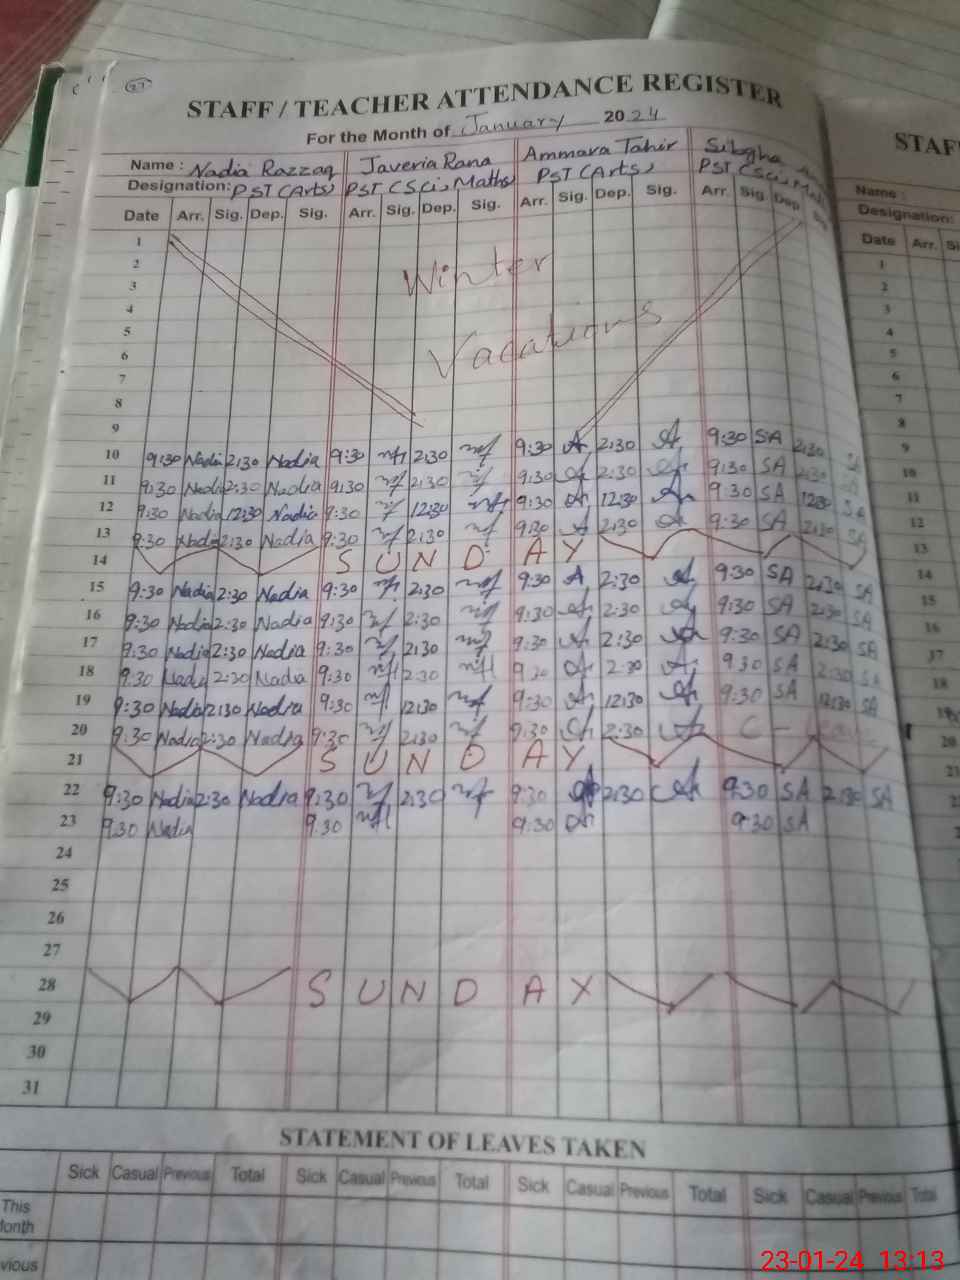 27
STAFF / TEACHER ATTENDANCE REGISTER
For the Month of January 2024
Name : Nadia Razzaq Javeria Rana Ammara Tahir Sibgha
Designation: PST (Arts) PST (Sci, Maths) PST (Arts) PST (Sci, Maths)
Date Arr. Sig. Dep. Sig. Arr. Sig. Dep. Sig. Arr. Sig. Dep. Sig. Arr. Sig. Dep. Sig.
1
2
3 Winter
4
5
6 Vacations
7
8
9
10 9:30 Nadia 2:30 Nadia 9:30 2:30 9:30 2:30 9:30 SA 2:30 SA
11 9:30 Nadia 2:30 Nadia 9:30 2:30 9:30 2:30 9:30 SA 2:30 SA
12 9:30 Nadia 12:30 Nadia 9:30 12:30 9:30 12:30 9:30 SA 12:30 SA
13 9:30 Nadia 2:30 Nadia 9:30 2:30 9:30 2:30 9:30 SA 2:30 SA
14 S U N D A Y
15 9:30 Nadia 2:30 Nadia 9:30 2:30 9:30 2:30 9:30 SA 2:30 SA
16 9:30 Nadia 2:30 Nadia 9:30 2:30 9:30 2:30 9:30 SA 2:30 SA
17 9:30 Nadia 2:30 Nadia 9:30 2:30 9:30 2:30 9:30 SA 2:30 SA
18 9:30 Nadia 2:30 Nadia 9:30 2:30 9:30 2:30 9:30 SA 2:30 SA
19 9:30 Nadia 12:30 Nadia 9:30 12:30 9:30 12:30 9:30 SA 12:30 SA
20 9:30 Nadia 2:30 Nadia 9:30 2:30 9:30 2:30 C-
21 S U N D A Y
22 9:30 Nadia 2:30 Nadia 9:30 2:30 9:30 2:30 9:30 SA 2:30 SA
23 9:30 Nadia 9:30 9:30 9:30 SA
24
25
26
27
28 S U N D A Y
29
30
31
STATEMENT OF LEAVES TAKEN
Sick Casual Previous Total Sick Casual Previous Total Sick Casual Previous Total Sick Casual Previous Total
This
Month
vious
STAF
Name :
Designation:
Date Arr. Si
1
2
3
4
5
6
7
8
9
10
11
12
13
14
15
16
17
18
19
20
21
23-01-24 13:13